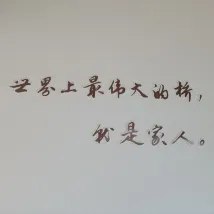 世界上最伟大的桥，
就是家人。